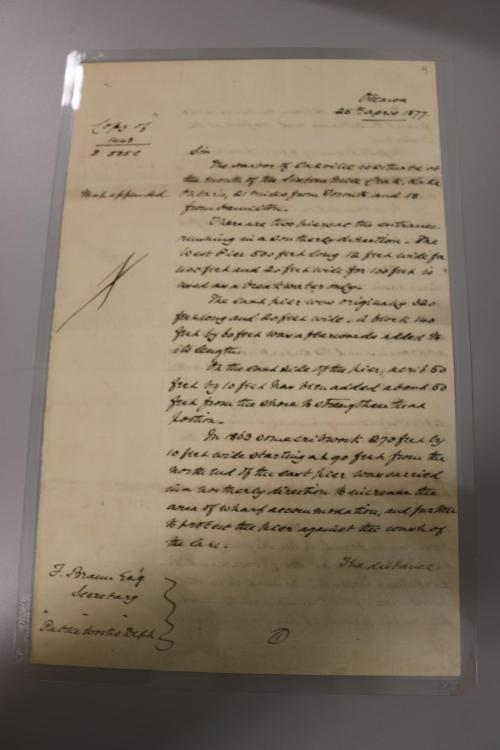 4
Ottawa
25th April 1877.
Copy of
Sir
The harbor of Oakville is situate at
Map appended
the mouth of the Sixteen Mile Creek, Lake
Ontario, 21 miles from Toronto and 18
from Hamilton.
There are two piers at the entrance
running in a southerly direction. The
West Pier 500 feet long 12 feet wide for
400 feet and 20 feet wide for 100 feet is
used as a breakwater only.
The east pier was originally 320
feet long and 20 feet wide. A block 140
feet by 60 feet was afterwards added to
its length.
On the east side of the pier, a crib 50
feet by 10 feet has been added about 50
feet from the shore to strengthen that
portion.
In 1863 some cribwork 270 feet by
10 feet wide starting at 90 feet from the
north end of the east pier was carried
in a northerly direction to increase the
area of wharf accommodation, and further
to protect the pier against the wash of
the lake.
The distance
F. Braun Esq
Secretary
Public Works Dept
1